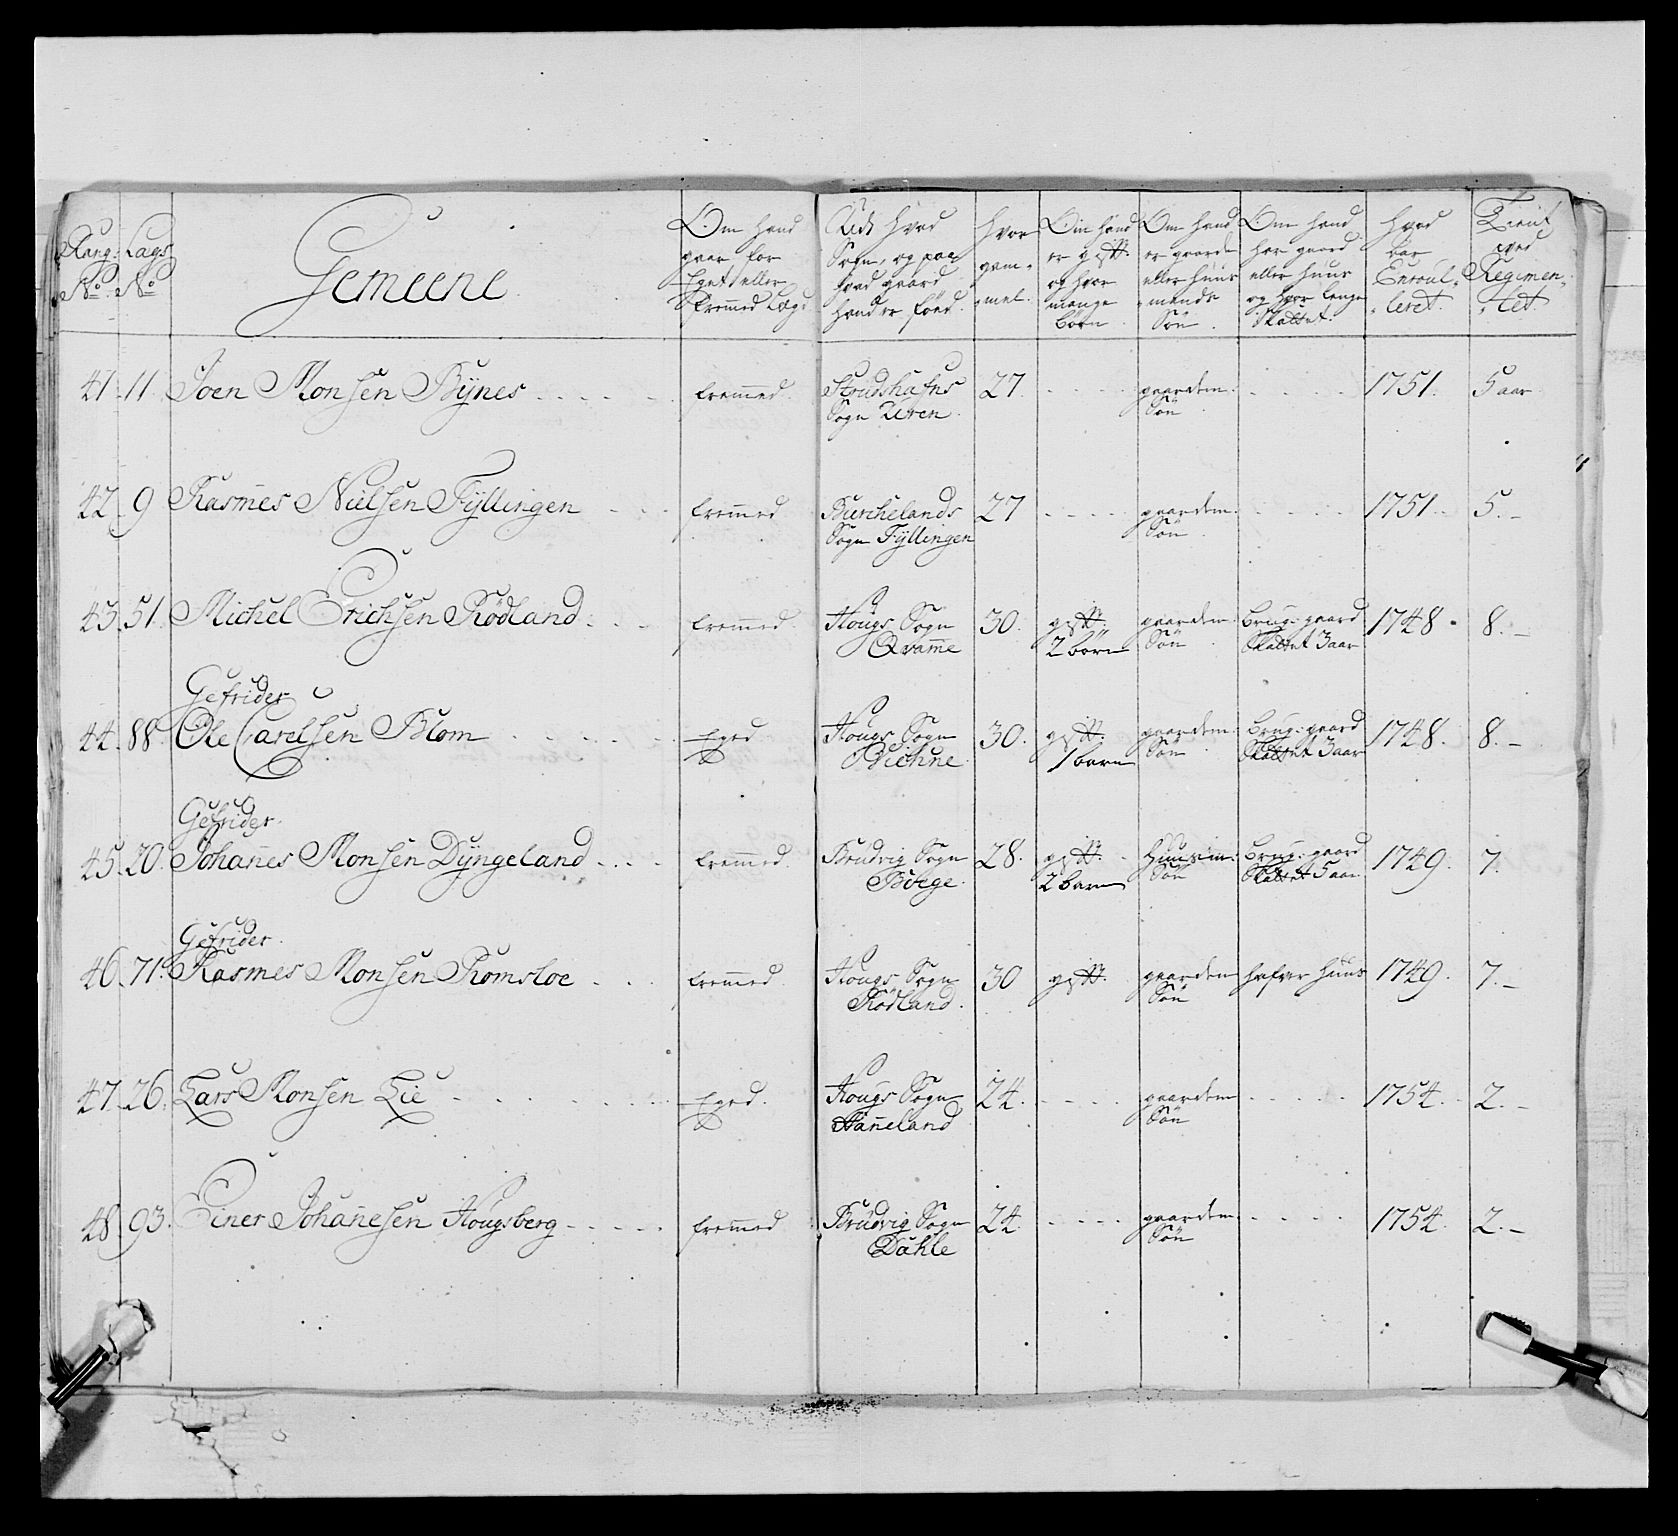 Rang No | Lags No | Gemeene | Om hand gaar for Eget eller fremmed Lægd | Udi hvad Sogn, og paa hvad gaard hand er föed. | Hvor gam- mel. | Om hand er gift og hvor mange börn | Om hand er gaard eller huus mands Sön | Om hand har gaard eller huus og hvor lenge Skattet. | Hvad aar Enroul- leret. | Tient ved Regimen- tet.
41. | 11 | Joen Monsen Bynes | fremmed | Strudshafns Sogn Uren | 27. | gaardem: Sön | 1751. | 5 aar
42. | 9 | Rasmes Nielsen Fyllingen | fremmed | Burchelands Sogn Fyllingen | 27 | gaardem: Sön | 1751 | 5.
43. | 51. | Michel Erichsen Rödland | fremmed | Hougs Sogn Qvamme | 30. | gift. 2 börn | gaardem: Sön | brug: gaard Skattet 3 aar | 1748 | 8.
Gefrider
44. | 88. | Ole Carelsen Blom | Eged | Hougs Sogn Viehne | 30. | gift. 1 barn | gaardem: Sön | brug: gaard Skattet 3 aar | 1748. | 8.
Gefrider.
45. | 20. | Johannes Monsen Dyngeland | fremmed | Brudvig Sogn Börge | 28. | gift. 2 barn | Huusm: Sön | brug: gaard Skattet 5 aar | 1749. | 7.
Gefrider.
46. | 71. | Rasmes Monsen Romsloe | fremmed | Hougs Sogn Rödland. | 30 | gift. | gaardem Sön | hafver huus | 1749. | 7.
47. | 26. | Lars Monsen Lie | Eged. | Hougs Sogn Hanneland | 24. | gaardem Sön | 1754. | 2.
48. | 93. | Einer Johannesen Hougsberg | fremmed | Brudvig Sogn Dahle | 24. | gaardem: Sön | 1754. | 2.